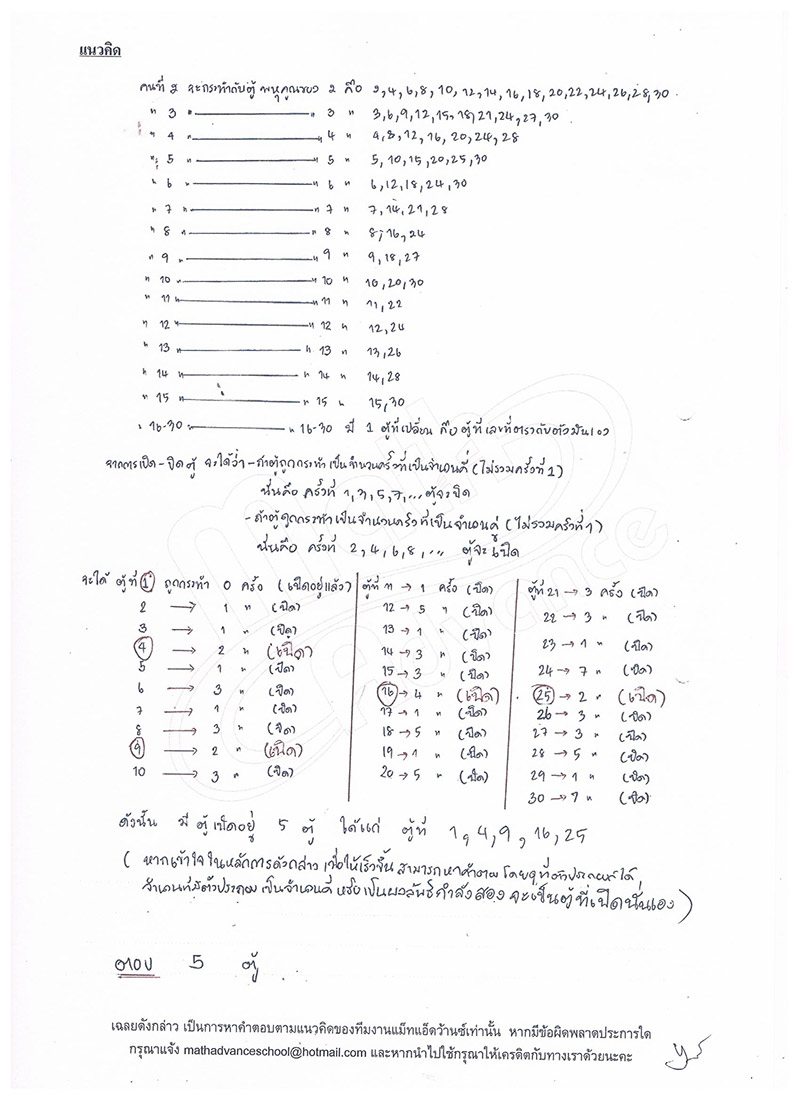 แนวคิด
คนที่ 2 จะกระทำกับตู้ พหุคูณของ 2 คือ 2,4,6,8,10,12,14,16,18,20,22,24,26,28,30
" 3 " " 3 " 3,6,9,12,15,18,21,24,27,30
" 4 " " 4 " 4,8,12,16,20,24,28
" 5 " " 5 " 5,10,15,20,25,30
" 6 " " 6 " 6,12,18,24,30
" 7 " " 7 " 7,14,21,28
" 8 " " 8 " 8,16,24
" 9 " " 9 " 9,18,27
" 10 " " 10 " 10,20,30
" 11 " " 11 " 11,22
" 12 " " 12 " 12,24
" 13 " " 13 " 13,26
" 14 " " 14 " 14,28
" 15 " " 15 " 15,30
" 16-30 " " 16-30 มี 1 ตู้ที่เปลี่ยน คือ ตู้ที่เลขที่ตรงกับตัวมันเอง
จากการเปิด-ปิดตู้ จะได้ว่า - ถ้าตู้ถูกกระทำเป็นจำนวนครั้งที่เป็นจำนวนคี่ (ไม่รวมครั้งที่ 1)
นั่นคือ ครั้งที่ 1,3,5,7,... ตู้จะปิด
- ถ้าตู้ถูกกระทำเป็นจำนวนครั้งที่เป็นจำนวนคู่ (ไม่รวมครั้งที่ 1)
นั่นคือ ครั้งที่ 2,4,6,8,... ตู้จะเปิด
จะได้ ตู้ที่ 1 ถูกกระทำ 0 ครั้ง (เปิดอยู่แล้ว)
2 → 1 " (ปิด)
3 → 1 " (ปิด)
4 → 2 " (เปิด)
5 → 1 " (ปิด)
6 → 3 " (ปิด)
7 → 1 " (ปิด)
8 → 3 " (ปิด)
9 → 2 " (เปิด)
10 → 3 " (ปิด)
ตู้ที่ 11 → 1 ครั้ง (ปิด)
12 → 5 " (ปิด)
13 → 1 " (ปิด)
14 → 3 " (ปิด)
15 → 3 " (ปิด)
16 → 4 " (เปิด)
17 → 1 " (ปิด)
18 → 5 " (ปิด)
19 → 1 " (ปิด)
20 → 5 " (ปิด)
ตู้ที่ 21 → 3 ครั้ง (ปิด)
22 → 3 " (ปิด)
23 → 1 " (ปิด)
24 → 7 " (ปิด)
25 → 2 " (เปิด)
26 → 3 " (ปิด)
27 → 3 " (ปิด)
28 → 5 " (ปิด)
29 → 1 " (ปิด)
30 → 7 " (ปิด)
ดังนั้น มี ตู้เปิดอยู่ 5 ตู้ ได้แก่ ตู้ที่ 1,4,9,16,25
( หากเข้าใจในหลักการดังกล่าว เพื่อให้เร็วขึ้น สามารถหาคำตอบ โดยดูที่ตัวประกอบได้
จำนวนที่มีตัวประกอบ เป็นจำนวนคี่ หรือ เป็นผลลัพธ์กำลังสอง จะเป็นตู้ที่เปิดนั่นเอง )
ตอบ 5 ตู้
เฉลยดังกล่าว เป็นการหาคำตอบตามแนวคิดของทีมงานแม็ทแอ็ดว้านซ์เท่านั้น หากมีข้อผิดพลาดประการใด
กรุณาแจ้ง mathadvanceschool@hotmail.com และหากนำไปใช้กรุณาให้เครดิตกับทางเราด้วยนะคะ
Math
Advance